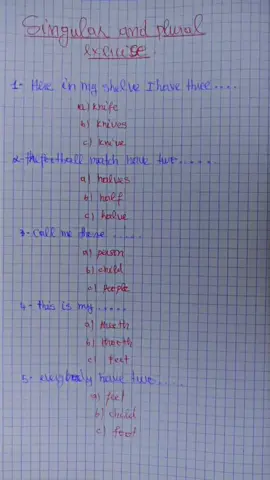 Singular and plural
exercise.
1- Here in my shelve I have three....
a) knife
b) knives
c) knive
2- the football match have two......
a) halves
b) half
c) halve
3- call me these ......
a) person
b) child
c) people
4- this is my.....
a)
b)
c) feet
5- everybody have two.....
a) feet
b) child
c) foot